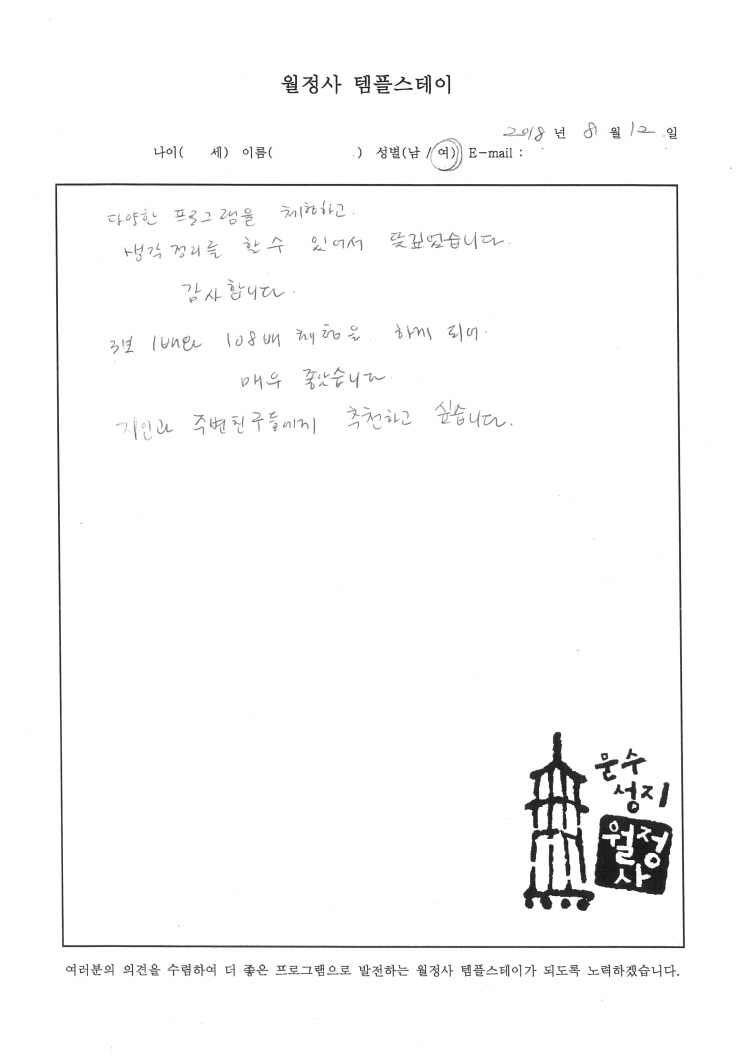 월정사 템플스테이
2018 년 8 월 12 일
나이( 세) 이름( ) 성별(남 / 여) E-mail :
다양한 프로그램을 체험하고.
생각 정리를 할 수 있어서 뜻깊었습니다.
감사합니다.
3보 1배와 108배 체험을 하게 되어.
매우 좋았습니다.
지인과 주변친구들에게 추천하고 싶습니다.
문수
성지
월정
사
여러분의 의견을 수렴하여 더 좋은 프로그램으로 발전하는 월정사 템플스테이가 되도록 노력하겠습니다.